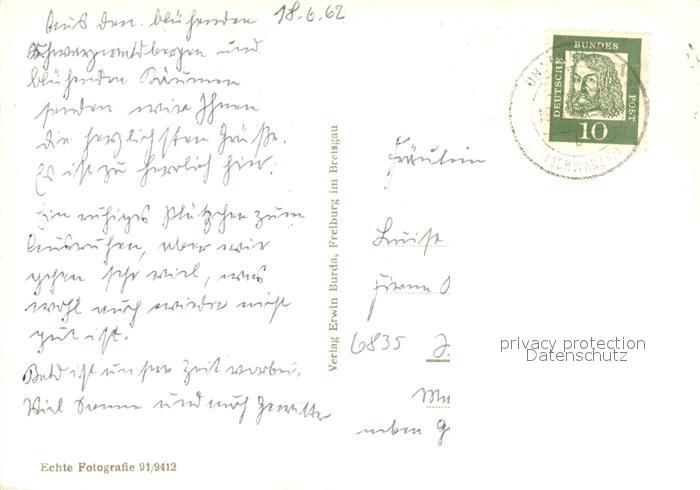 Aus den blühenden 18.6.62
Schwarzwaldbergen und
blühenden Bäumen
senden wir Ihnen
die herzlichsten Grüße.
Es ist zu herrlich hier.
Ein ruhiges Plätzchen zum
Ausruhen, aber wir
gehen sehr viel, was
wohl auch wieder nicht
gut ist.
Bald ist unsere Zeit vorbei.
Viel Sonne und auch Gewitter
Echte Fotografie 91/9412
Verlag Erwin Burda, Freiburg im Breisgau
DEUTSCHE BUNDES POST
10
(SCHWARZW)
Fräulein
Luise
Firma
6835
neben G
privacy protection
Datenschutz